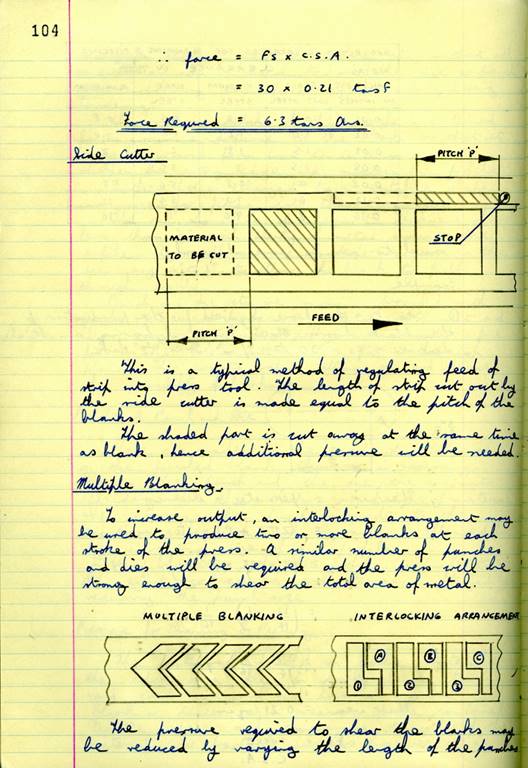 104
∴ force = fs x C.S.A.
= 30 x 0.21 tons f
Force Required = 6.3 tons Ans.
Side Cutter
PITCH 'P'
MATERIAL
TO BE CUT
STOP
PITCH 'P'
FEED
This is a typical method of regulating feed of
strip into press tool. The length of strip cut out by
the side cutter is made equal to the pitch of the
blanks.
The shaded part is cut away at the same time
as blank, hence additional pressure will be needed.
Multiple Blanking.
To increase output, an interlocking arrangement may
be used to produce two or more blanks at each
stroke of the press. A similar number of punches
and dies will be required and the press will be
strong enough to shear the total area of metal.
MULTIPLE BLANKING
INTERLOCKING ARRANGEMENT
A B C
1 2 3
The pressure required to shear the blanks may
be reduced by varying the length of the punches